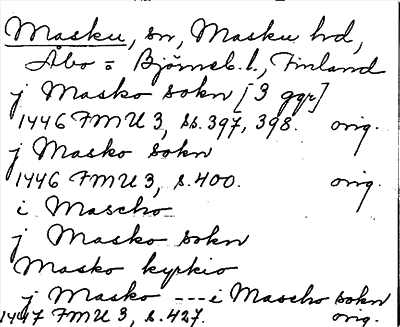 Masku, sn, Masku hd,
Åbo = Björneb. l., Finland
j Masko sokn [3 ggr]
1446 FMU 3, ss. 397, 398. orig.
j Masko sokn
1446 FMU 3, s. 400. orig.
i Mascho
j Masko sokn
Masko kyrkio
j Masko --- i Mascho sokn
1447 FMU 3, s. 427. orig.